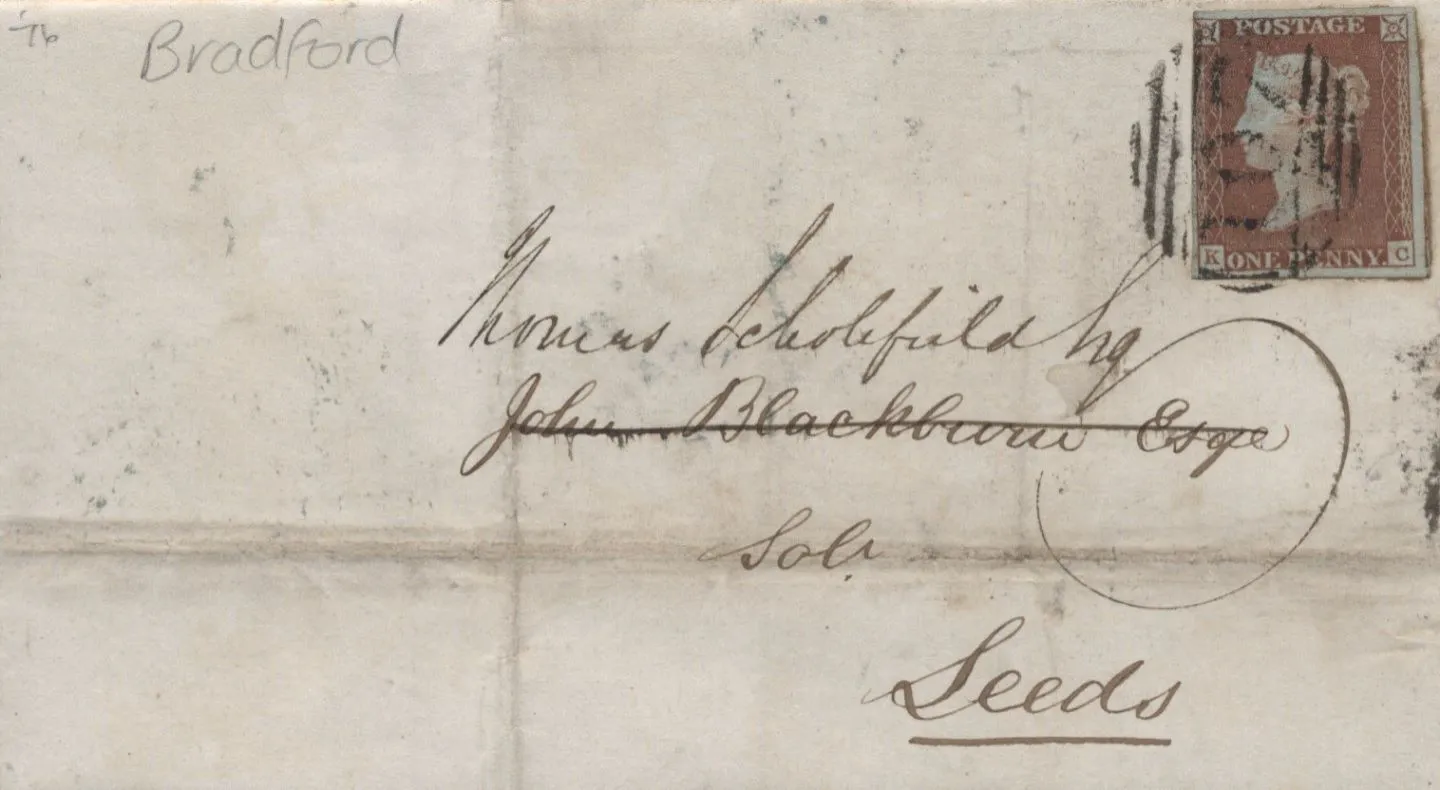 '76
Bradford
POSTAGE
K ONE PENNY. C
Thomas Scholefield Esq
John Blackburn Esqe
Solr
Leeds